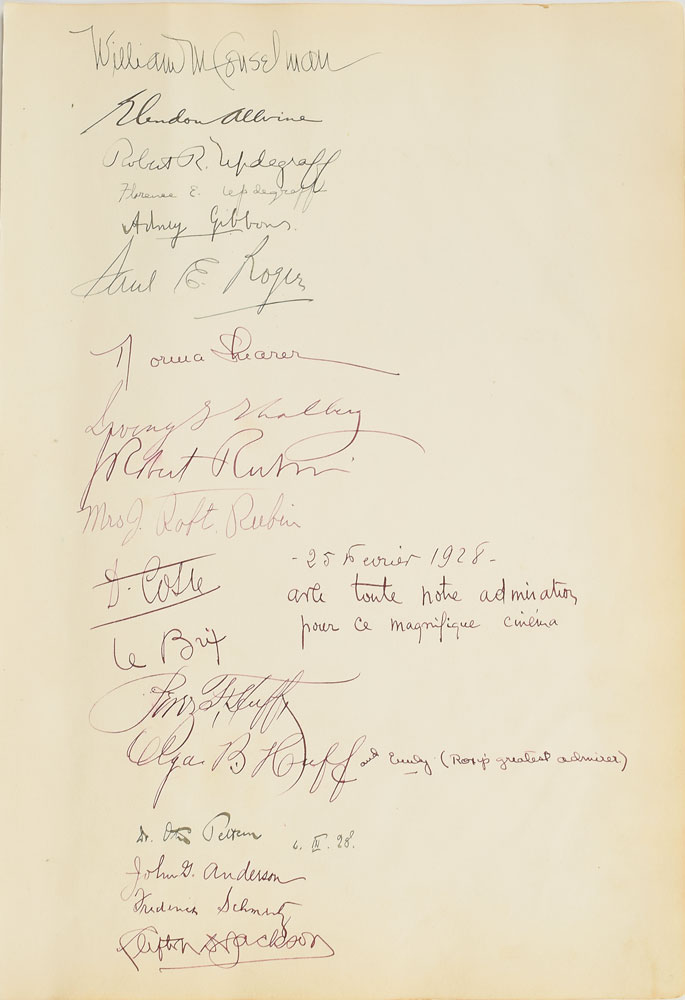 William M Conselman
Glendon Allvine
Robert R. Updegraff
Florence E. Updegraff
Gibbons.
Paul E. Roger
Norma Shearer
Irving G Thalberg
J Robert Rubin
Mrs J. Robt. Rubin
D. Coste
- 25 Fevrier 1928 -
avec toute notre admiration
pour ce magnifique cinéma
Le Brix
Huff
Olga B Huff and Emily (Roxy's greatest admirer)
Dr. 6. III. 28.
John G. Anderson
Schmutz
Clifton Jackson